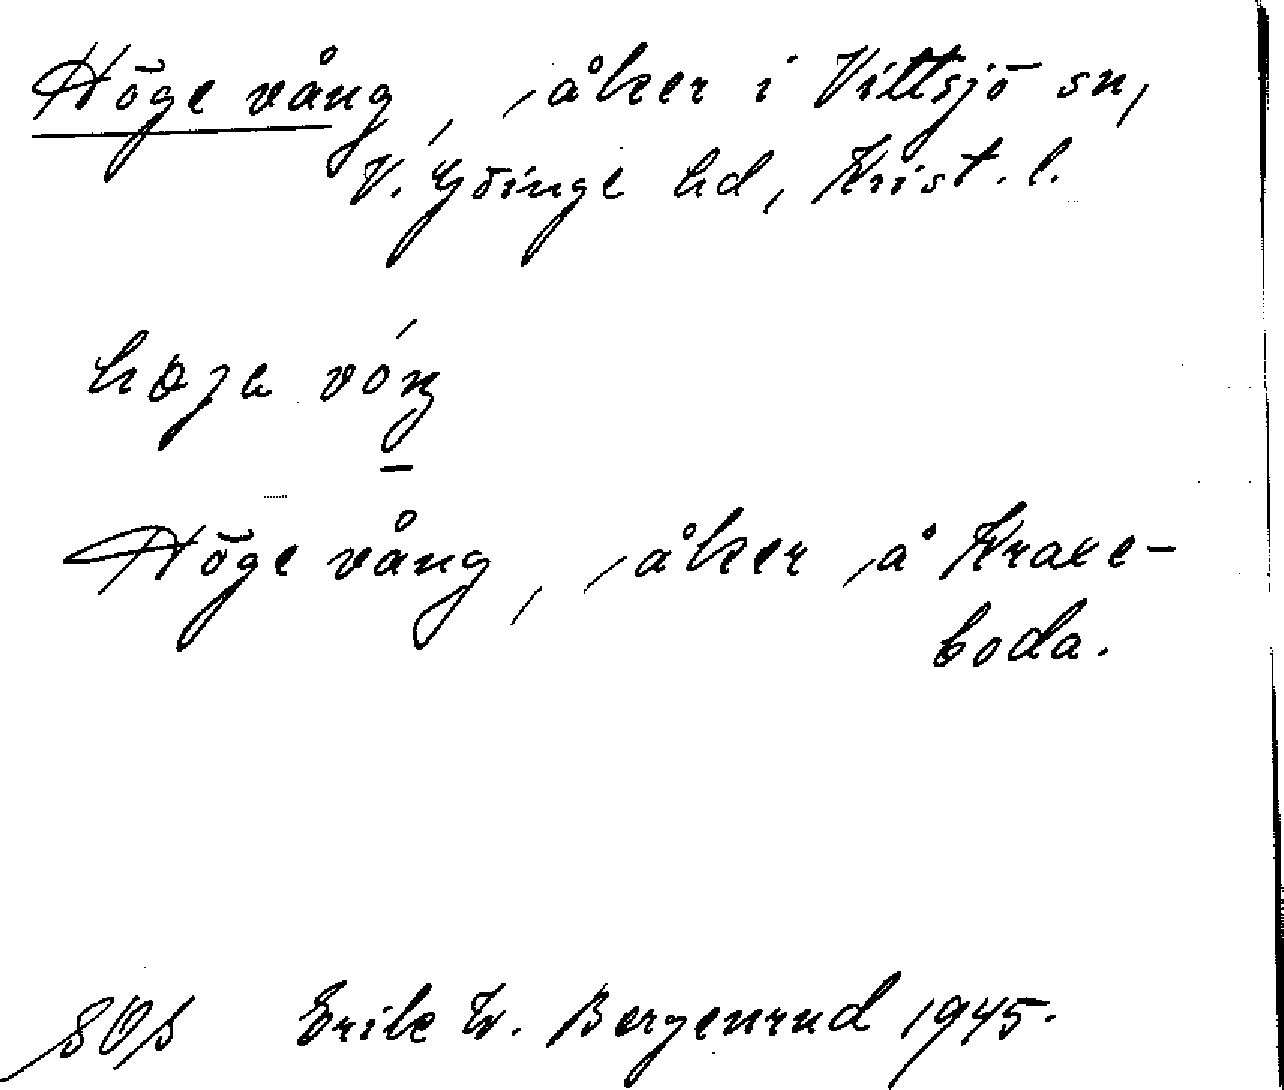 Höge vång, åker i Vittsjö sn,
V. Göinge hd, Krist. l.
vóŋ
Höge vång, åker å Kraxe-
boda.
Erik W. Bergenrud 1945.